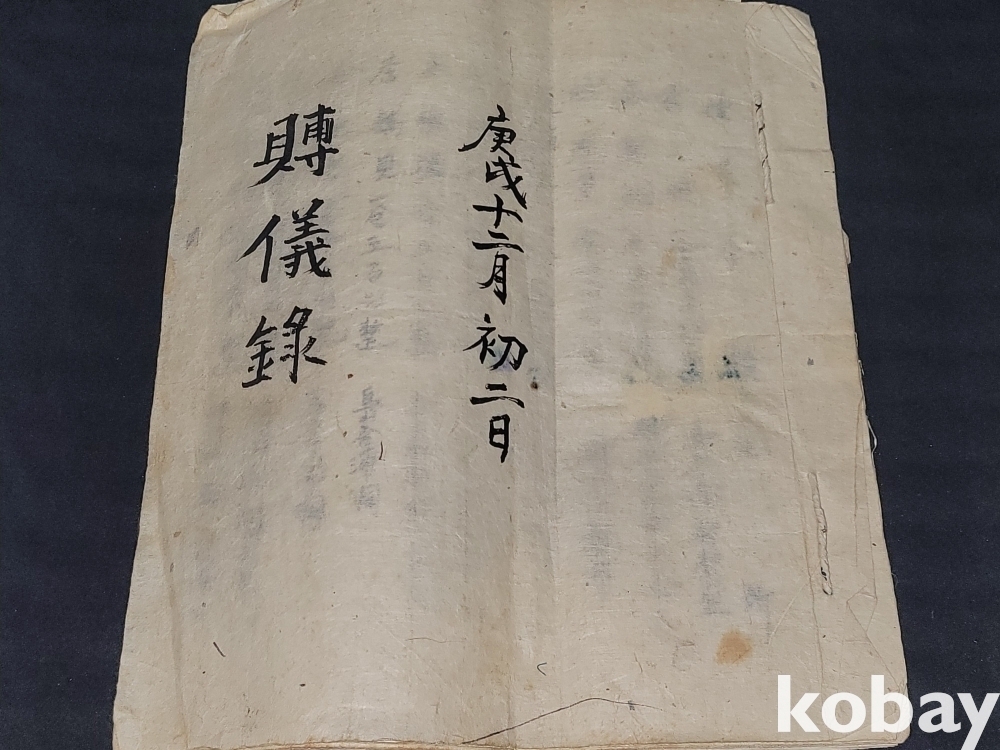 庚戌十二月初二日
賻儀錄
kobay